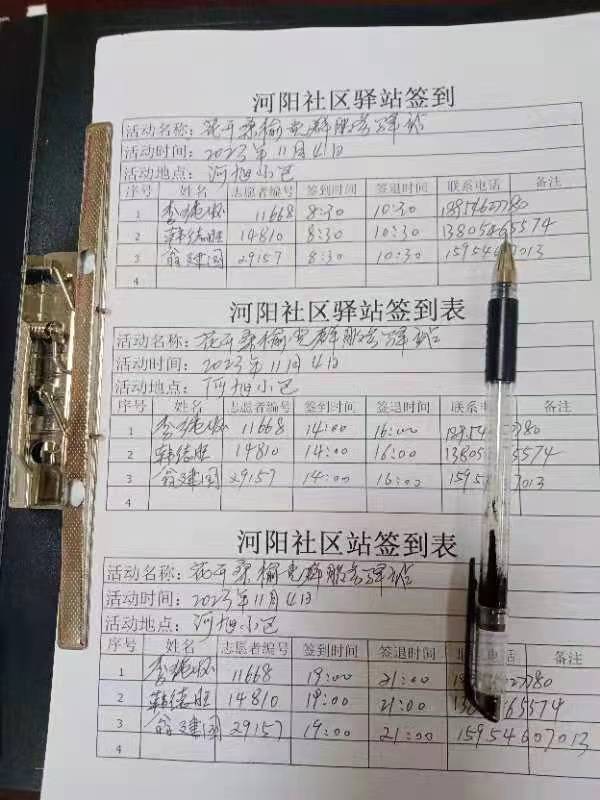 河阳社区驿站签到
活动名称：花开桑榆党群服务驿站
活动时间：2023年11月4日
活动地点：河旭小区
序号 姓名 志愿者编号 签到时间 签退时间 联系电话 备注
1 李 11668 8:30 10:30
2 韩德胜 14810 8:30 10:30 13805465574
3 翁建国 29157 8:30 10:30
4
河阳社区驿站签到表
活动名称：花开桑榆党群服务驿站
活动时间：2023年11月4日
活动地点：河旭小区
序号 姓名 志愿者编号 签到时间 签退时间 联系电话 备注
1 李 11668 14:00 16:00
2 韩德胜 14810 14:00 16:00
3 翁建国 29157 14:00 16:00
4
河阳社区站签到表
活动名称：花开桑榆党群服务驿站
活动时间：2023年11月4日
活动地点：河旭小区
序号 姓名 志愿者编号 签到时间 签退时间 电话 备注
1 李 11668 19:00 21:00
2 韩德胜 14810 19:00 21:00
3 翁建国 29157 19:00 21:00 15954607013
4